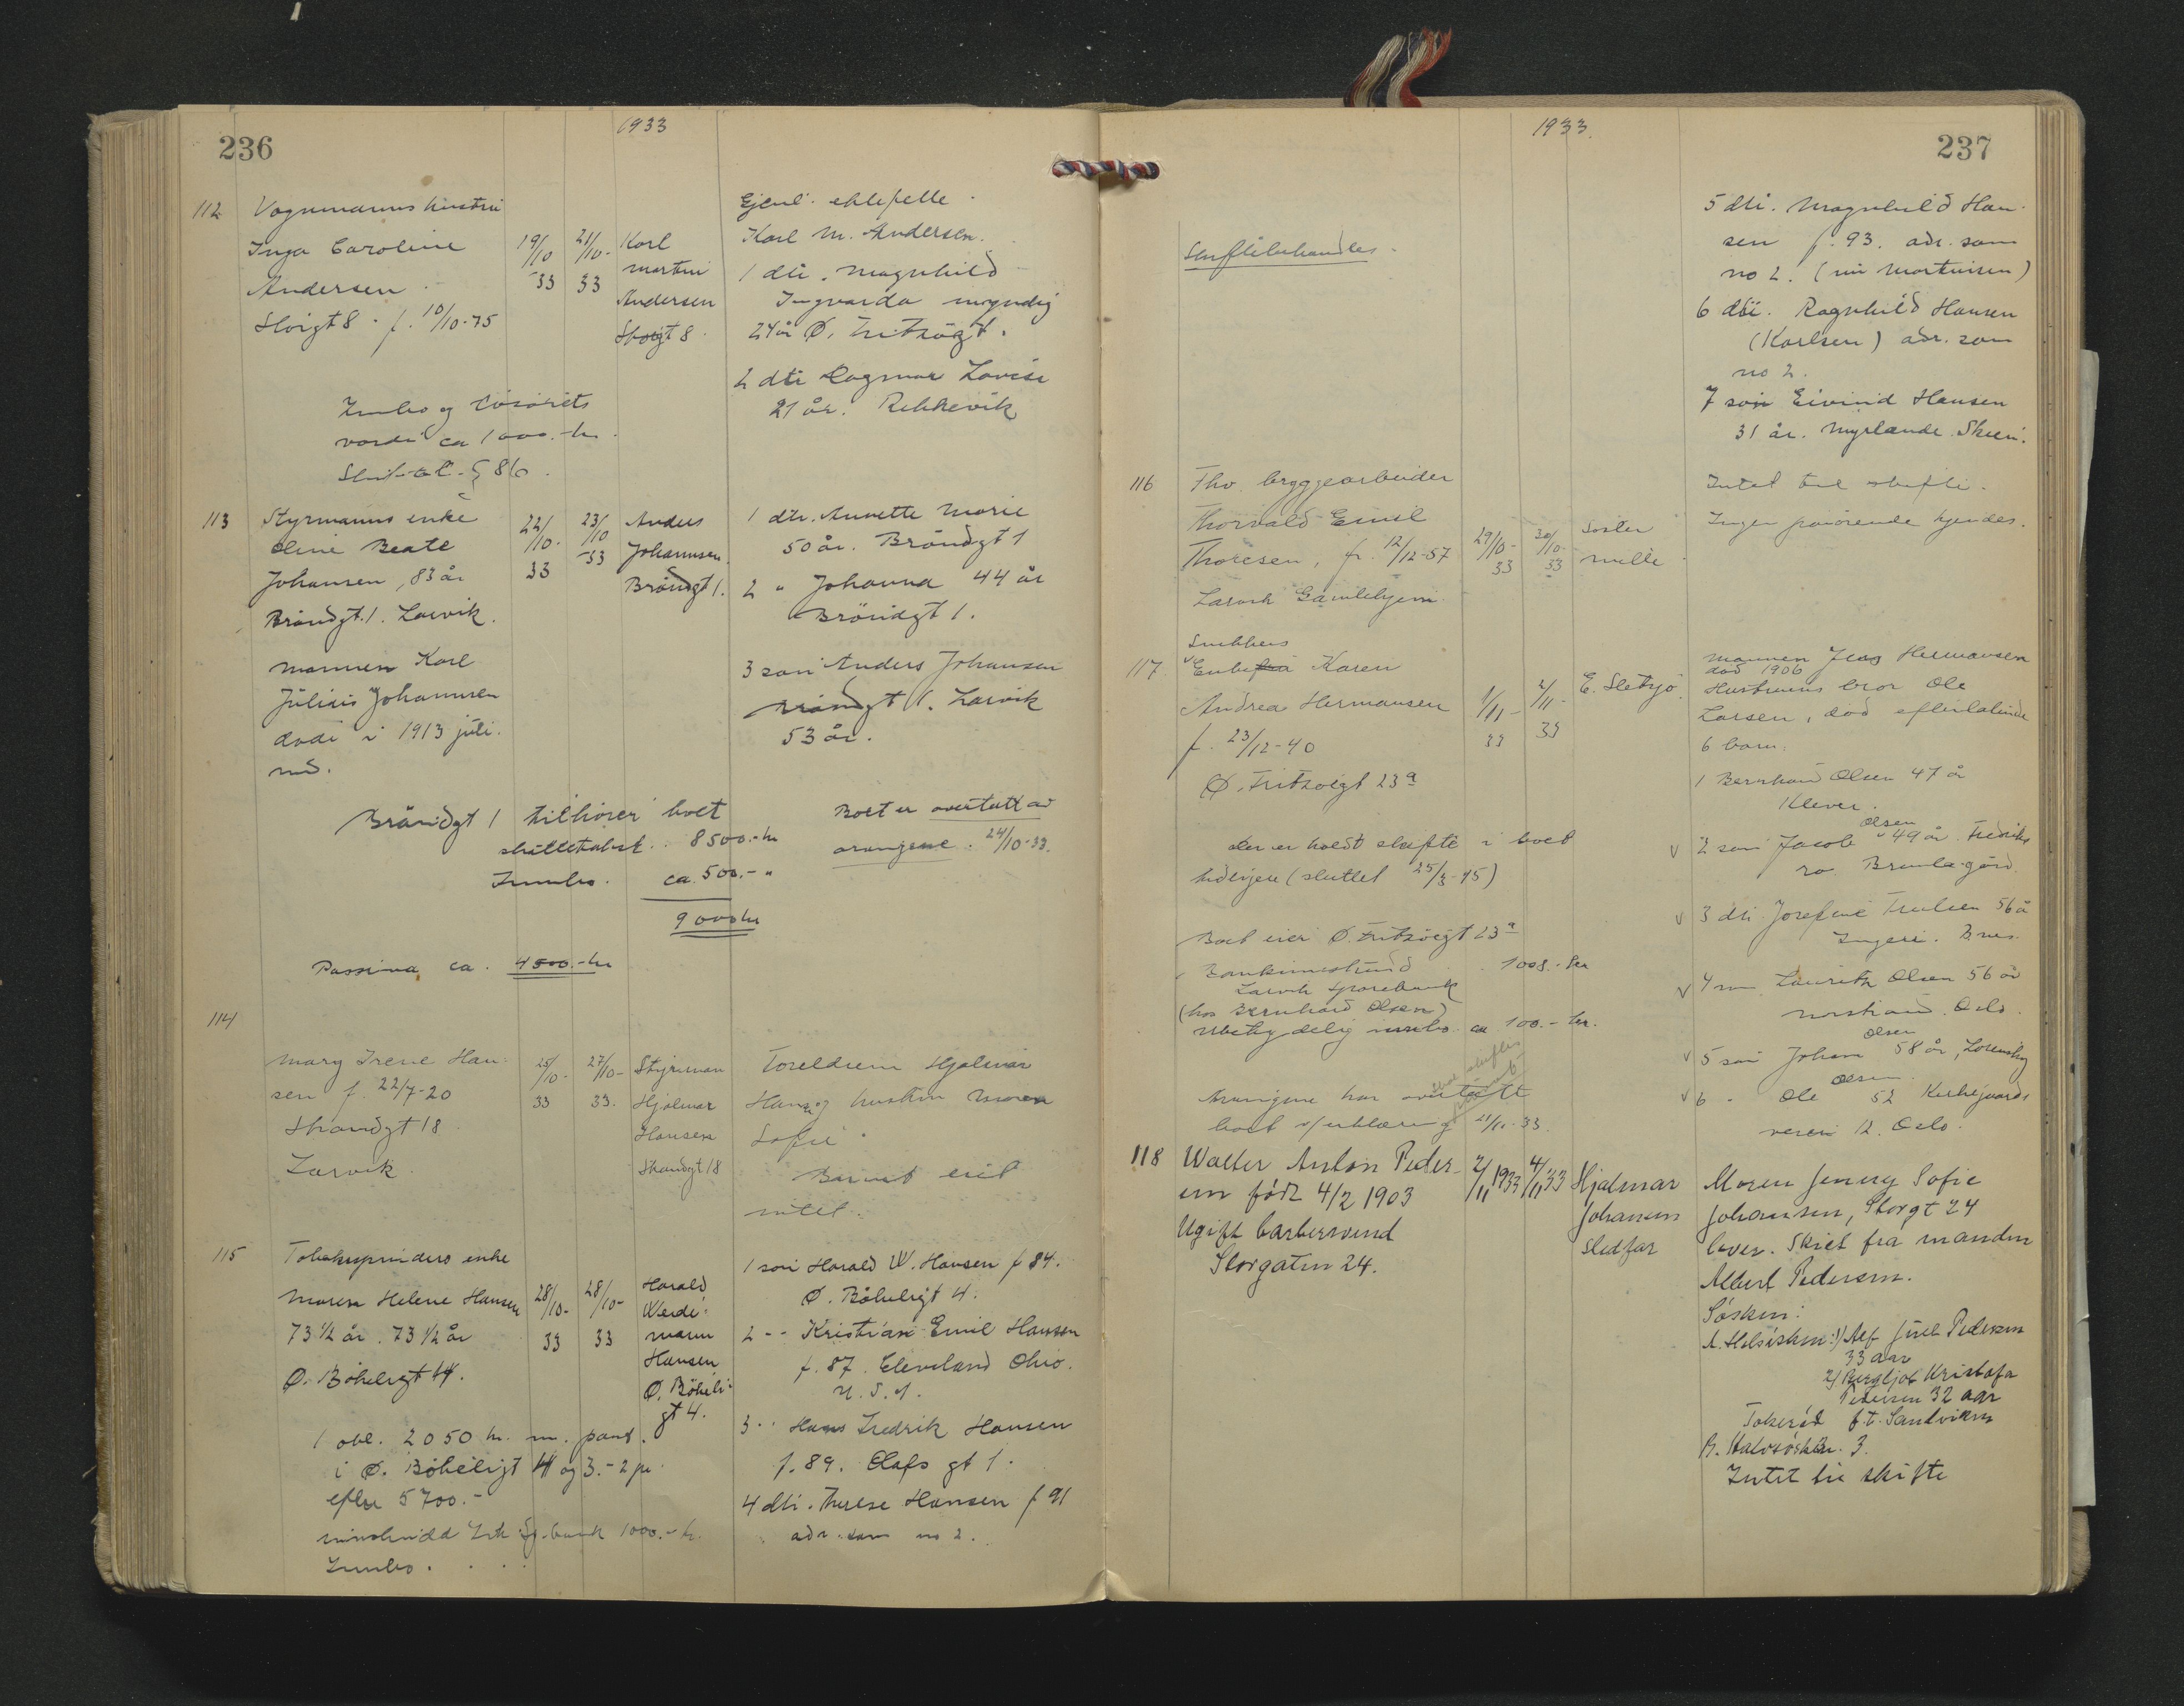 236
1933
112
Vognmanns hustru
Inga Caroline
Andersen
f. 10/10-75
19/10 -33
21/10- 33
Karl
Martin
Andersen
Ejenl. ektefelle
Karl M. Andersen.
1 dtr. Magnhild
Ingvarda myndig
24 år Ø. Fritzøgt.
2 dtr Dagmar Lovise
21 år. Rekkevik
Innbo og løsørets
verdi ca 1000.- kr.
§ 86.
113
Styrmanns enke
Oline Beate
Johansen, 83 år
Brøndgt. 1. Larvik.
22/10. 33
23/10 -33
Anders
Johannsen
Brøndgt 1.
Mannen Karl
Julius Johannsen
døde i 1913 juli.
md.
1 dtr. Annette Marie
50 år. Brøndgt 1
2 " Johanna 44 år
Brøndgt 1.
3 søn Anders Johansen
Brøndgt 1. Larvik
53 år.
Brøndgt 1 tilhører boet
skattetakst. 8500.- kr
Innbo. ca. 500.- "
9000 kr
Passiva ca. 4500.- kr
Boet er overtatt av
arvingene. 24/10-33.
114
Mary Irene Han-
sen f. 22/7-20
Strandgt 18
Larvik.
25/10- 33
27/10- 33.
Styrman
Hjalmar
Hansen
Strandgt. 18
Foreldrene Hjalmar
Hans. og hustru Maren
Sofie
Barnet eiet
intet.
115
Tobakspinders enke
Maren Helene Hansen
73 1/2 år. 73 1/2 år
Ø. Bøkeligt 4.
28/10- 33
28/10- 33
Harald
Weide-
mann
Hansen
Ø. Bøkeli-
gt 4.
1 søn Harald W. Hansen f 84.
Ø. Bøkeligt 4.
2 -- Kristian Emil Hansen
f. 87. Cleveland Ohio.
U. S. A.
3 -- Hans Fredrik Hansen
f. 89. Olafs gt 1.
4 dtr. Therese Hansen f 91
adr. som no 2.
1 obl. 2050 kr. m. pant.
i Ø. Bøkeligt 4 og 3.- 2 pr.
efter 5700.-
bank 1000.- kr.
Innbo. . . .
1933.
237
Skiftebehandles.
5 dtr. Magnhild Han-
sen f. 93. adr. som
no 2. (nu Martinsen)
6 dtr. Ragnhild Hansen
(Karlsen) adr. som
no 2.
7 søn Eivind Hansen
31 år. Myrlande. Skien.
116
Fhv. bryggearbeider
Thorvald Emil
Thoresen, f. 12/12-57
Larvik Gamlehjem
29/10- 33
30/10- 33
Søster
Intet til skifte.
Ingen pårørende kjendes.
117
Snekkers
Enke Karen
Andrea Hermansen
f. 23/12-40
Ø. Fritzøegt 23a
1/11- 33
2/11- 33
E. Sletsjø.
Mannen Jens Hermansen
død 1906
Hustruens bror Ole
Larsen, død efterlatende
6 barn:
1 Bernhard Olsen 47 år
Klever.
2 søn Jacob Olsen 49 år. Fredriks
ro Brunla gård
3 dtr Josefine 56 år
4 søn Lauritz Olsen 56 år
Oslo.
5 søn Johan Olsen 58 år,
6 - Ole Olsen 52 Kirkegaards
veien 12. Oslo.
der er holdt skifte i boet
tidligere (sluttet 25/3-15)
Boet eier Ø. Fritzøegt 23a
Bankinnskudd 1008.- kr
Larvik Sparebank
(hos Bernhard Olsen)
Ubetydelig innbo. ca 100.- kr.
Arvingene har overtatt
boet v/erklæring 11/11-33.
118
Walter Anton Peder-
sen född 4/2 1903
Ugift barbersvend
Storgaten 24.
2/11 1933
4/11 '33
Hjalmar
Johansen
stedfar
Moren Jenny Sofie
Johansen, Storgt 24
lever. Skilt fra manden
Albert Pedersen.
Søsken:
A. Helsøsken: 1) Alf Juel Pedersen
33 aar
2) Bergljot Kristofa
Pedersen 32 aar
f.t. Sandviken
B. Halvsøsken. 3.
Intet til skifte